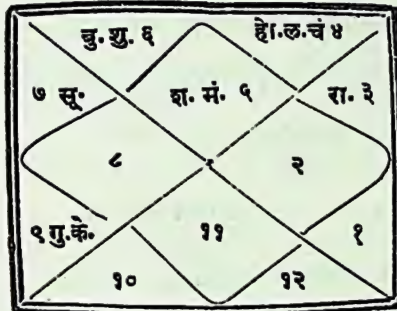 बु. शु. ६
हो.ल.चं ४
७ सू.
श. मं. ५
रा. ३
८
२
९ गु.के.
११
१
१०
१२